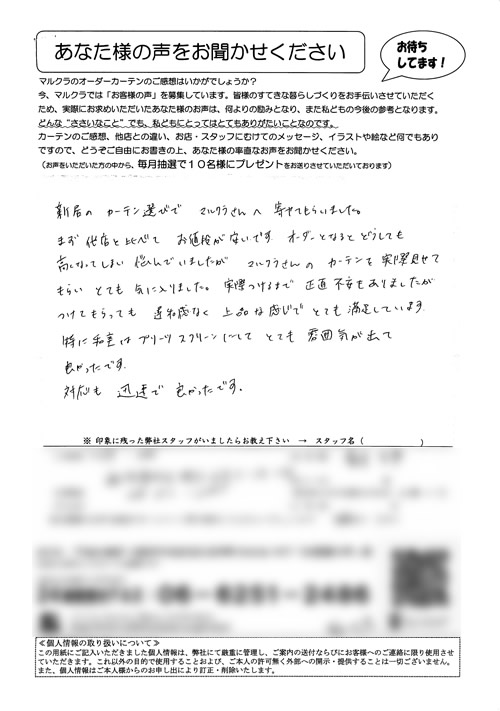 あなた様の声をお聞かせください
お待ち
してます！
マルクラのオーダーカーテンのご感想はいかがでしょうか？
今、マルクラでは「お客様の声」を募集しています。皆様のすてきな暮らしづくりをお手伝いさせていただく
ため、実際にお求めいただいたあなた様のお声は、何よりの励みとなり、また私どもの今後の参考となります。
どんな“ささいなこと”でも、私どもにとってはとてもありがたいことなのです。
カーテンのご感想、他店との違い、お店・スタッフにむけてのメッセージ、イラストや絵など何でもあり
ですので、どうぞご自由にお書きの上、あなた様の率直なお声をお聞かせください。
（お声をいただいた方の中から、毎月抽選で１０名様にプレゼントをお送りさせていただいております）
新居の カーテン選びで マルクラさんへ 寄せてもらいました。
まず 他店と比べて お値段が安いです。オーダーとなると どうしても
高くなってしまい 悩んでいましたが マルクラさんの カーテンを 実際見せて
もらい とても 気に入りました。実際つけるまで 正直 不安もありましたが
つけてもらっても 違和感なく 上品な感じで とても 満足しています。
特に 和室は プリーツ スクリーンにして とても 雰囲気が出て
良かったです。
対応も 迅速で 良かったです。
※ 印象に残った弊社スタッフがいましたらお教え下さい → スタッフ名（ ）
06-6251-2486
≪個人情報の取り扱いについて≫
この用紙にご記入いただきました個人情報は、弊社にて厳重に管理し、ご案内の送付ならびにお客様へのご連絡に限り使用させ
ていただきます。これ以外の目的で使用することおよび、ご本人の許可無く外部への開示・提供することは一切ございません。
また、個人情報はご本人様からのお申し出により訂正・削除いたします。